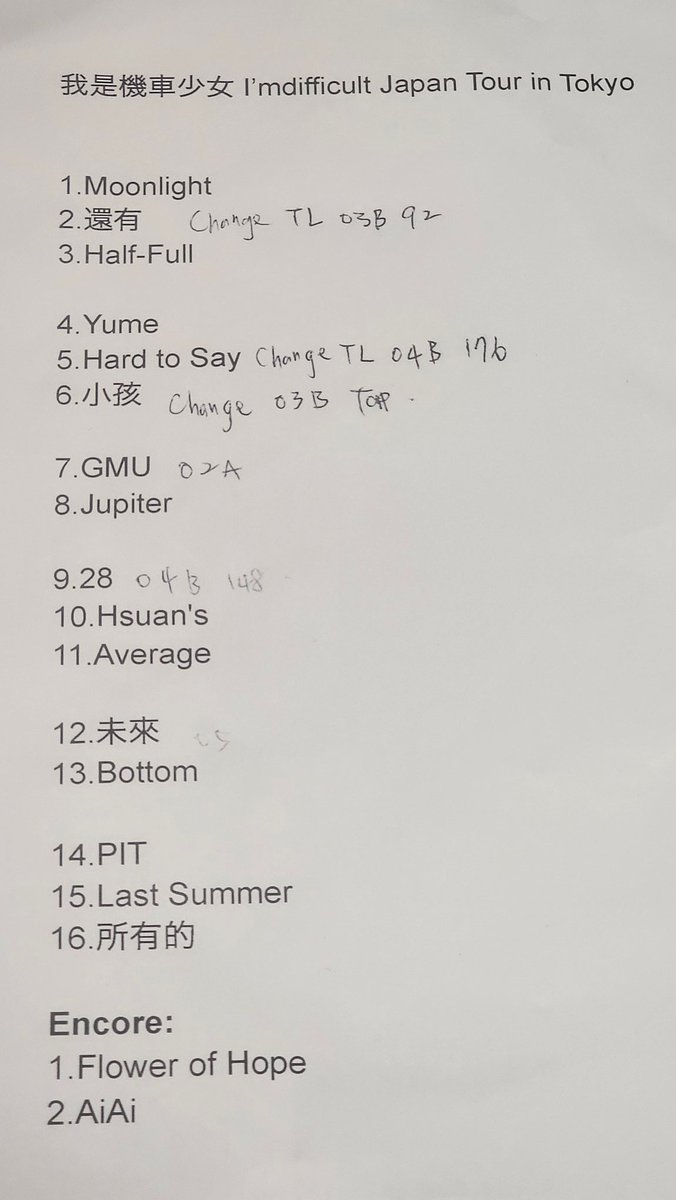 我是機車少女 I'mdifficult Japan Tour in Tokyo
1.Moonlight
2.還有 Change TL 03B 92
3.Half-Full
4.Yume
5.Hard to Say Change TL 04B 176
6.小孩 Change 03B TOP.
7.GMU 02A
8.Jupiter
9.28 04B 148
10.Hsuan's
11.Average
12.未來
13.Bottom
14.PIT
15.Last Summer
16.所有的
Encore:
1.Flower of Hope
2.AiAi